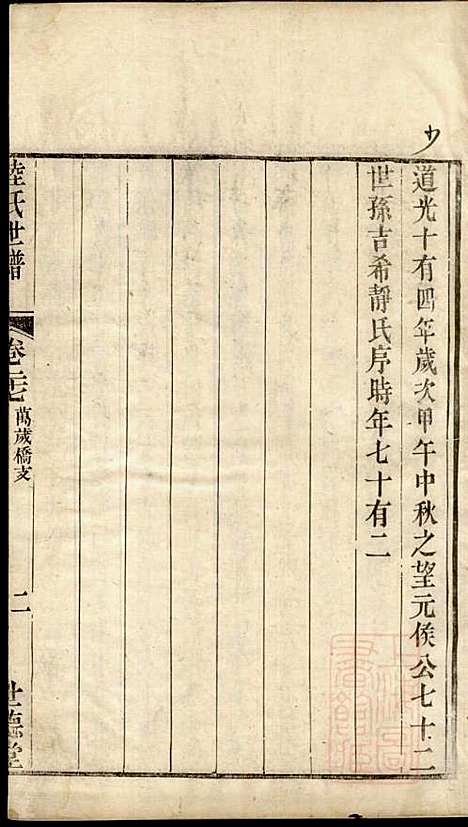 少
道光十有四年歲次甲午中秋之望元侯公七十二
世孫吉希靜氏序時年七十有二
陸氏世譜
萬歲橋支
二
世德堂